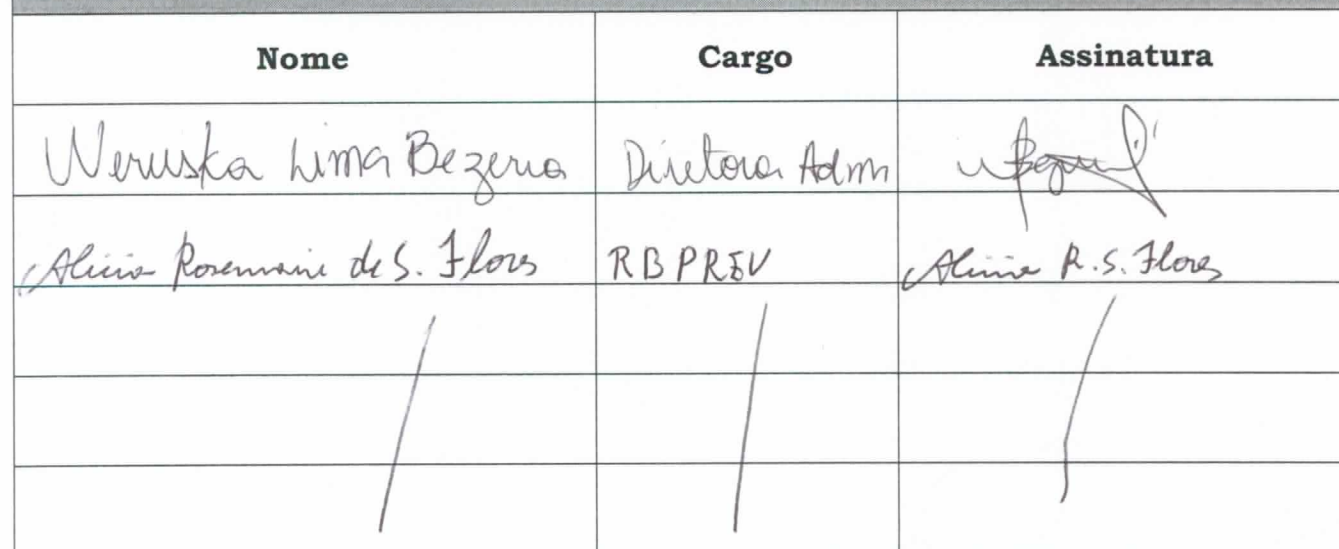 Nome Cargo Assinatura
Weruska Lima Bezerra Diretora Adm
Alicia Rosemaine de S. Flores RBPREV Alicia R. S. Flores